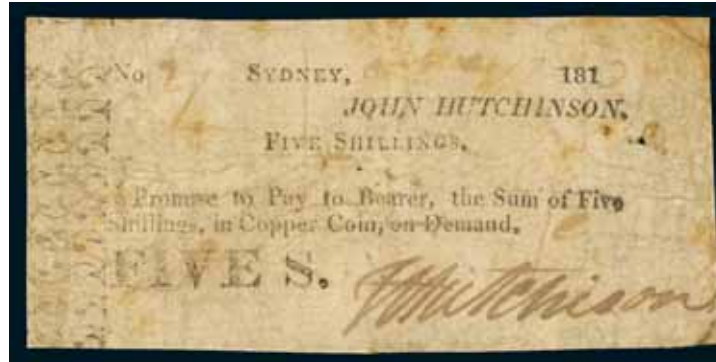 No SYDNEY, 181
JOHN HUTCHINSON.
FIVE SHILLINGS.
Promise to Pay to Bearer, the Sum of Five
Shillings, in Copper Coin, on Demand.
FIVE S. J Hutchinson